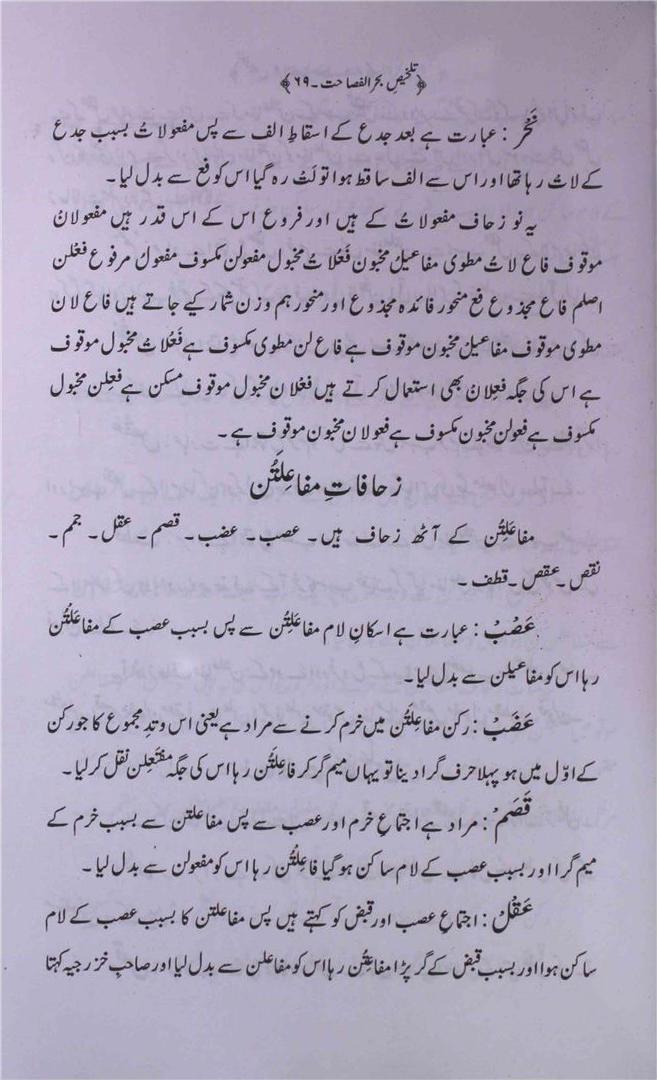 ﴿ تلخیص بحر الفصاحت۔ ۶۹ ﴾
نَحَر : عبارت ہے بعد جدع کے اسقاطِ الف سے پس مفعولاتُ بسبب جدع
کے لاتُ رہا تھا اور اس سے الف ساقط ہوا تو لَتْ رہ گیا اس کو فع سے بدل لیا۔
یہ نو زحاف مفعولاتُ کے ہیں اور فروع اس کے اس قدر ہیں مفعولانْ
موقوف فاع لاتُ مطوی مفاعیلُ مخبون فَعَلاتُ مخبول مفعولن مکسوف مفعولُ مرفوع فعْلن
اصلم فاع مجدوع فع منحور فائدہ مجدوع اور منحور ہم وزن شمار کیے جاتے ہیں فاع لان
مطوی موقوف مفاعیلْ مخبون موقوف ہے فاع لن مطوی مکسوف ہے فَعُلاتْ مخبول موقوف
ہے اس کی جگہ فعِلانْ بھی استعمال کرتے ہیں فعْلان مخبول موقوف مسکن ہے فعِلن مخبول
مکسوف ہے فعولن مخبون مکسوف ہے فعولان مخبون موقوف ہے۔
زحافاتِ مفاعِلَتُن
مفاعَلِتُن کے آٹھ زحاف ہیں۔ عصب۔ عضب۔ قصم۔ عقل۔ جمم۔
نقص۔ عقص۔ قطف۔
عَصْبْ : عبارت ہے اسکانِ لام مفاعَلِتُن سے پس بسبب عصب کے مفاعَلْتُن
رہا اس کو مفاعیلن سے بدل لیا۔
عَضَبْ : رکن مفاعَلَتُن میں خرم کرنے سے مراد ہے یعنی اس وتدِ مجموع کا جو رکن
کے اوّل میں ہو پہلا حرف گرا دینا تو یہاں میم گر کر فاعِلَتُن رہا اس کی جگہ مفتَعِلن نقل کر لیا۔
قَصَمْ : مراد ہے اجتماعِ خرم اور عصب سے پس مفاعلتن سے بسبب خرم کے
میم گرا اور بسبب عصب کے لام ساکن ہو گیا فاعِلْتُن رہا اس کو مفعولن سے بدل لیا۔
عَقْلْ : اجتماعِ عصب اور قبض کو کہتے ہیں پس مفاعلتن کا بسبب عصب کے لام
ساکن ہوا اور بسبب قبض کے گر پڑا مفاعِتُن رہا اس کو مفاعلن سے بدل لیا اور صاحبِ خزرجیہ کہتا